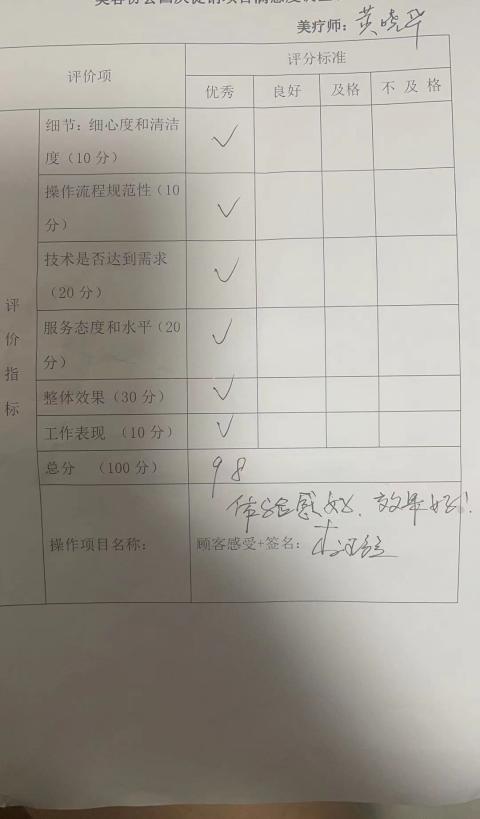 美疗师：黄晓华
评价项
评分标准
优秀 良好 及格 不 及 格
评价指标
细节：细心度和清洁
度（10 分）
✓
操作流程规范性（10
分）
✓
技术是否达到需求
（20 分）
✓
服务态度和水平（20
分）
✓
整体效果（30 分） ✓
工作表现 （10 分） ✓
总分 （100 分） 98
体验感好、效果好！
操作项目名称： 顾客感受+签名：